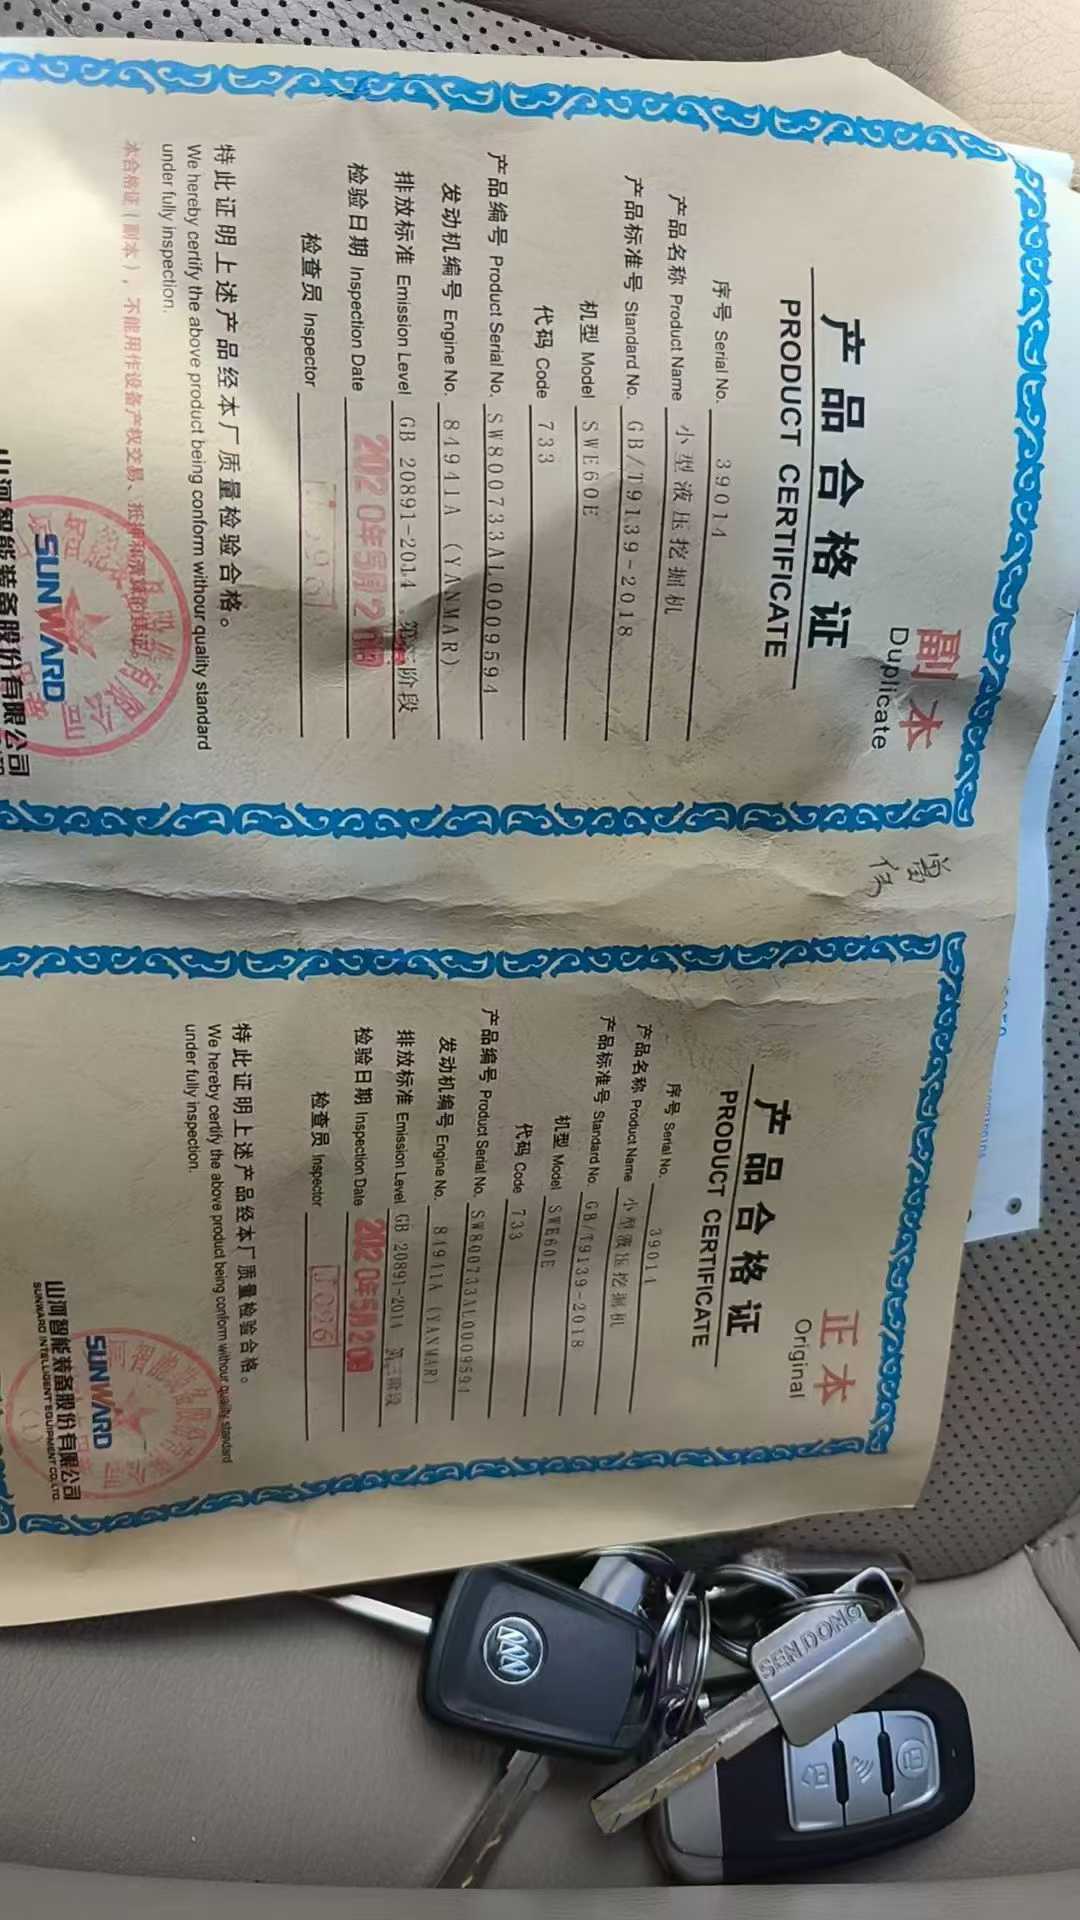 副本
Duplicate
产品合格证
PRODUCT CERTIFICATE
序号 Serial No. 39014
产品名称 Product Name 小型液压挖掘机
产品标准号 Standard No. GB/T9139-2018
机型 Model SWE60E
代码 Code 733
产品编号 Product Serial No. SW800733AL0009594
发动机编号 Engine No. 84941A (YANMAR)
排放标准 Emission Level GB 20891-2014 第三阶段
检验日期 Inspection Date 2020年5月2
检查员 Inspector
特此证明上述产品经本厂质量检验合格。
We hereby certify the above product being conform withour quality standard
under fully inspection.
本合格证(副本),不能用作设备产权交易、抵押和
SUNWARD
山河智能装备股份有限公司
正本
Original
产品合格证
PRODUCT CERTIFICATE
序号 Serial No. 39014
产品名称 Product Name 小型液压挖掘机
产品标准号 Standard No. GB/T9139-2018
机型 Model SWE60E
代码 Code 733
产品编号 Product Serial No. SW800733AL0009594
发动机编号 Engine No. 84941A (YANMAR)
排放标准 Emission Level GB 20891-2014 第三阶段
检验日期 Inspection Date 2020年5月2
检查员 Inspector
特此证明上述产品经本厂质量检验合格。
We hereby certify the above product being conform withour quality standard
under fully inspection.
SUNWARD
山河智能装备股份有限公司
SUNWARD INTELLIGENT EQUIPMENT CO.,LTD.
SENDONG